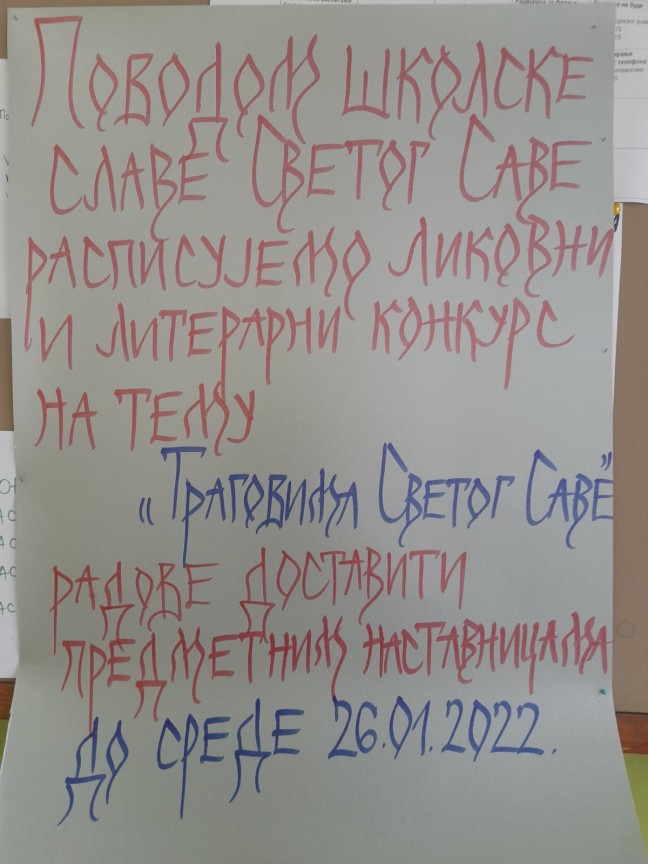 Поводом школске
славе Светог Саве
расписујемо ликовни
и литерарни конкурс
на тему
„Траговима Светог Саве”
радове доставити
предметним наставницама
до среде 26.01.2022.